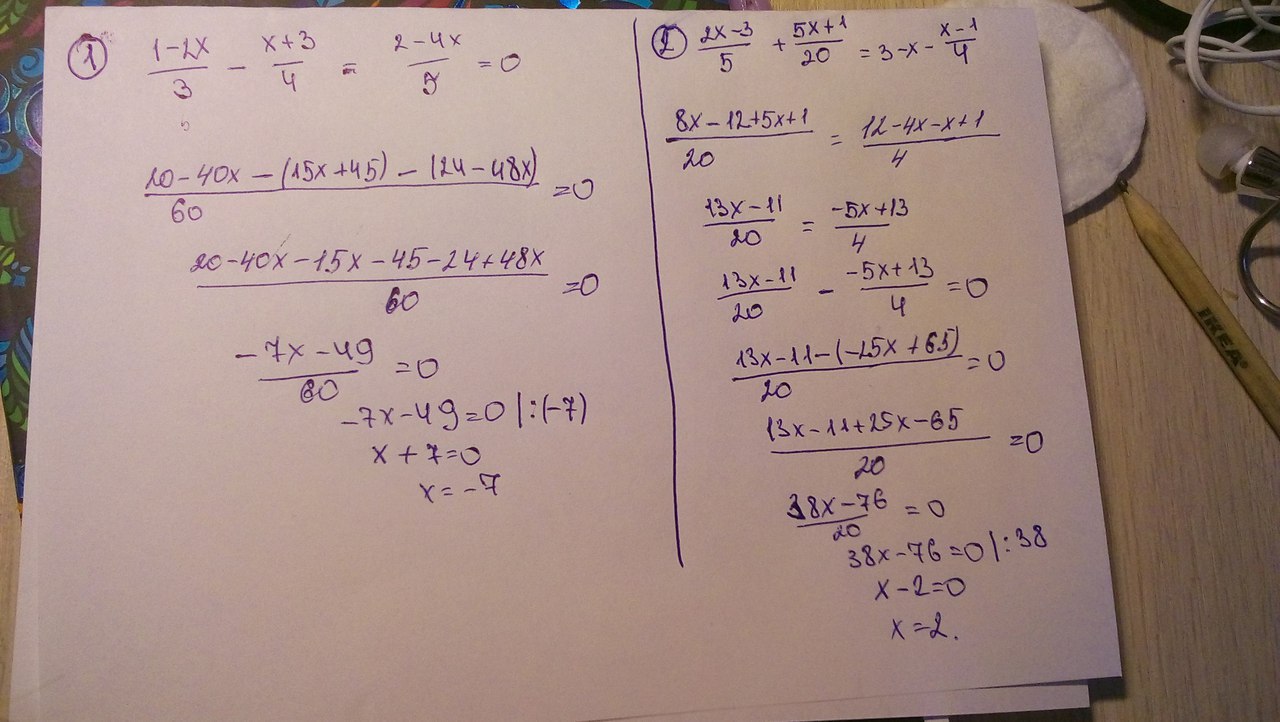 1 (1-2x)/3 - (x+3)/4 = (2-4x)/5 = 0
(20-40x-(15x+45)-(24-48x))/60 = 0
(20-40x-15x-45-24+48x)/60 = 0
(-7x-49)/60 = 0
-7x-49=0 |:(-7)
x+7=0
x=-7
2 (2x-3)/5 + (5x+1)/20 = 3-x-(x-1)/4
(8x-12+5x+1)/20 = (12-4x-x+1)/4
(13x-11)/20 = (-5x+13)/4
(13x-11)/20 - (-5x+13)/4 = 0
(13x-11-(-25x+65))/20 = 0
(13x-11+25x-65)/20 = 0
(38x-76)/20 = 0
38x-76=0 |:38
x-2=0
x=2.
IKEA